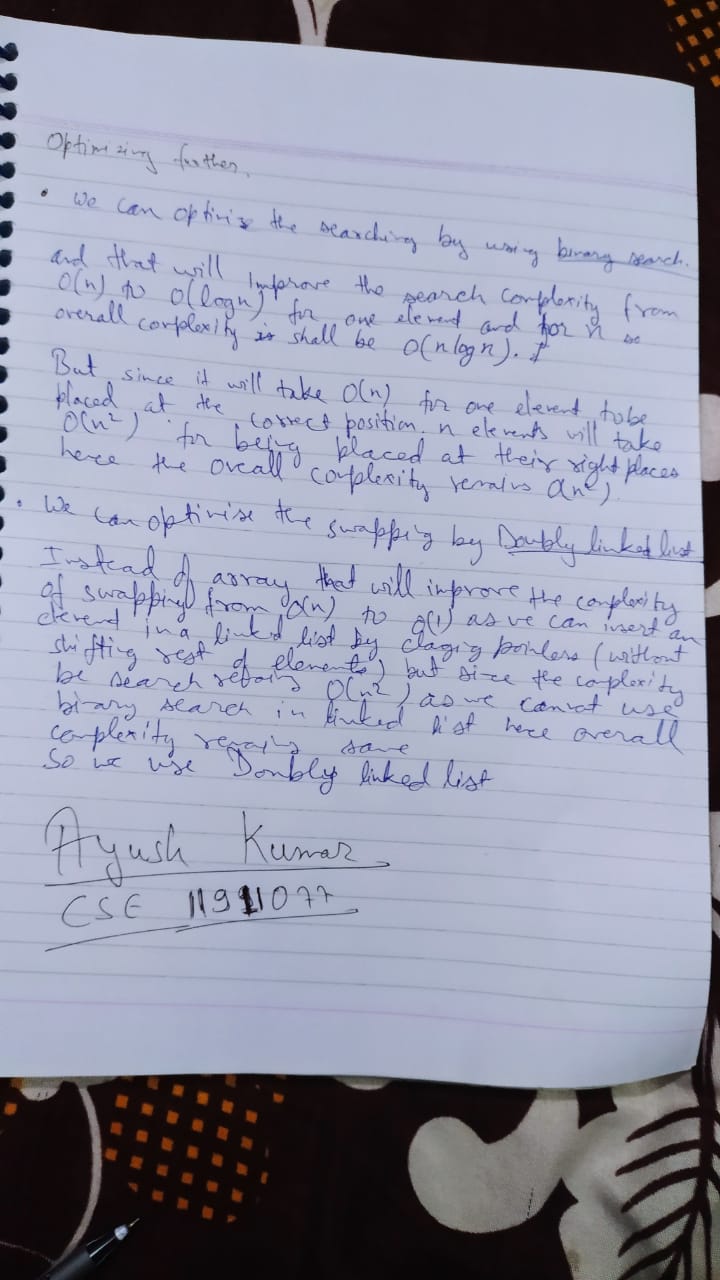 Optimizing further.
• We can optimize the searching by using binary search.
and that will Improve the search complexity from
O(n) to O(logn) for one element and for n
overall complexity is shall be O(nlogn).
But since it will take O(n) for one element to be
placed at the correct position. n elements will take
O(n²) for being placed at their right places
hence the overall complexity remains O(n²)
• We can optimise the swapping by Doubly linked list
Instead of array that will improve the complexity
of swapping from O(n) to O(1) as we can insert an
element in a linked list by changing pointers (without
shifting rest of elements) but since the complexity
be search remains O(n²) as we cannot use
binary search in linked list hence overall
complexity remains same
So we use Doubly linked list
Ayush Kumar
CSE 11911077